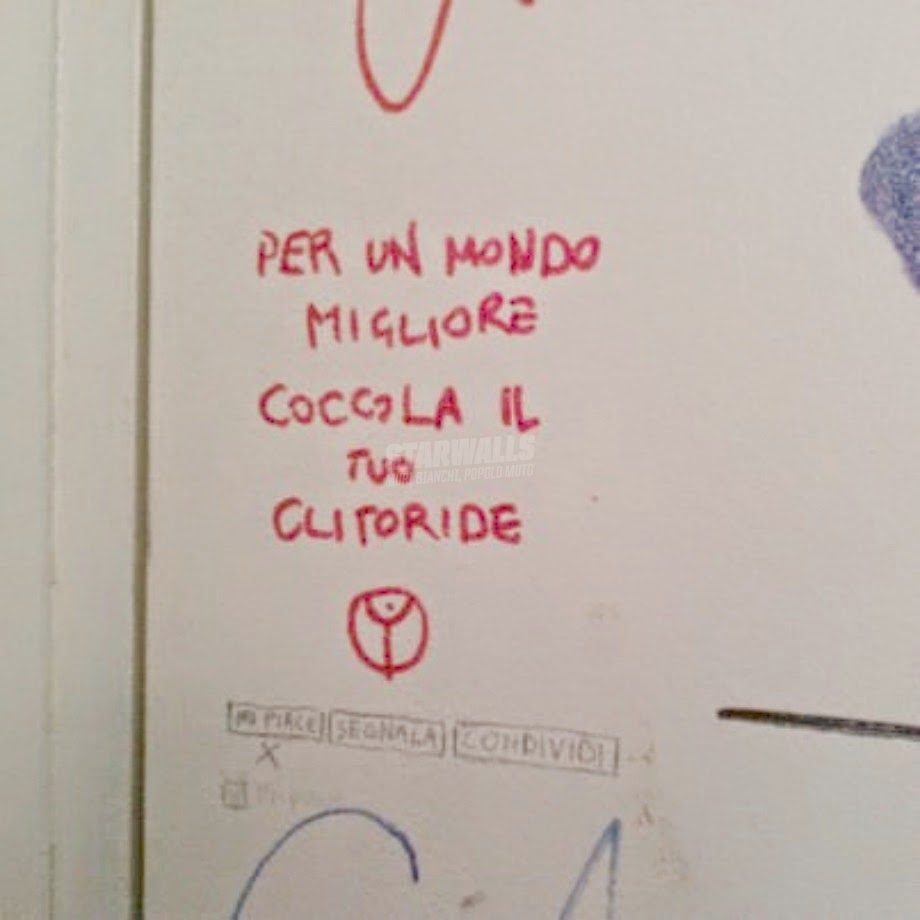 PER UN MONDO
MIGLIORE
COCCOLA IL
TUO
CLITORIDE
STARWALLS
BIANCHI, POPOLO MUTO
MI PIACE SEGNALA CONDIVIDI
X